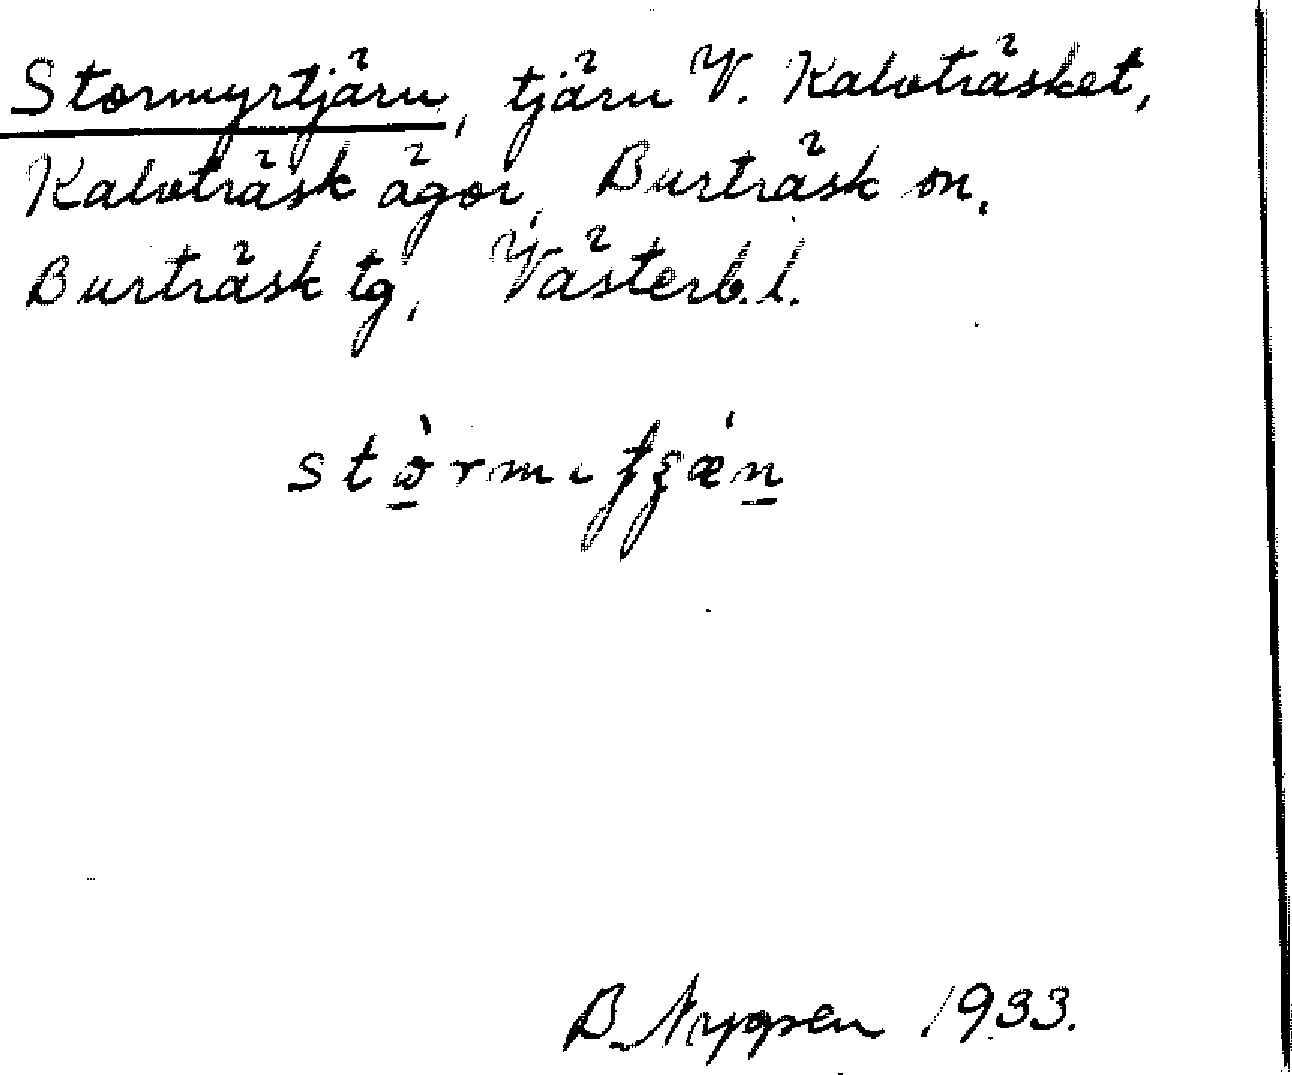 Stormyrtjärn, tjärn V. Kalvträsket,
Kalvträsk ägor, Burträsk sn.
Burträsk tg, Västerb. l.
B. Nygren 1933.